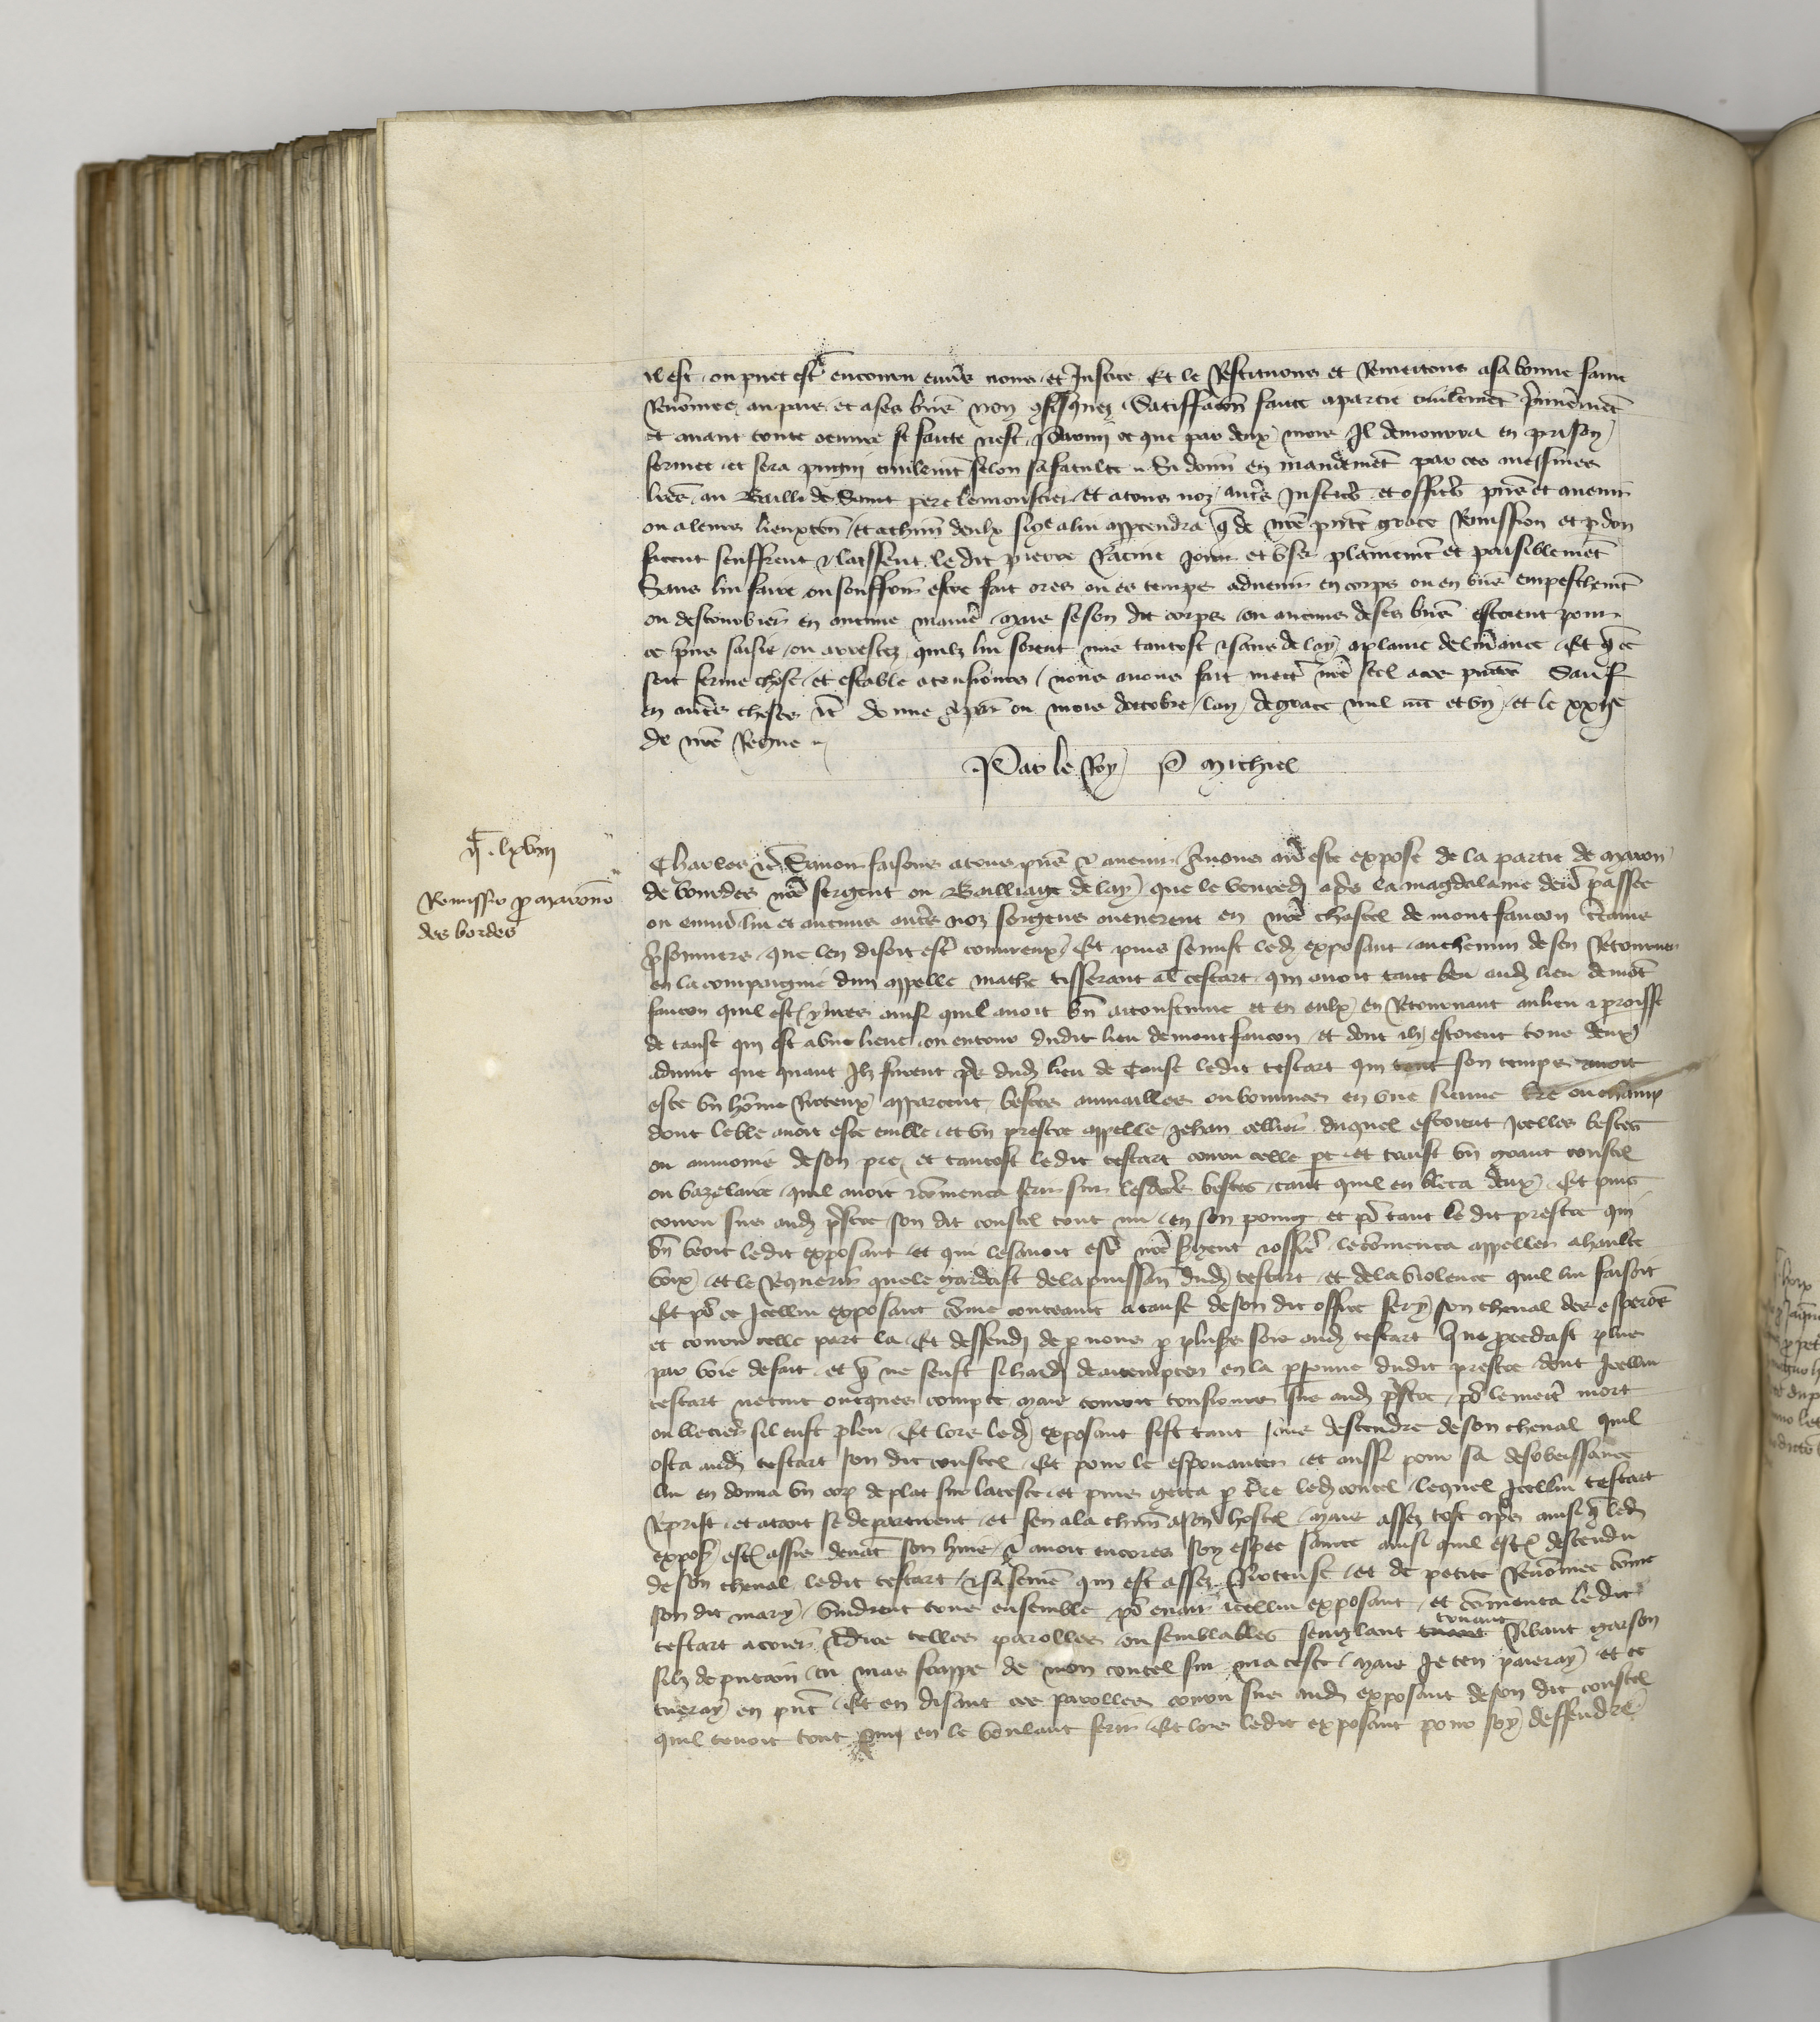 il est ou puet estre encouru envers nous et Justice Et le Restituons et Remettons a sa bonne fame
Renommee au pais et a ses biens non confisquez Satisfacion faicte a partie civilement premierement
et avant toute euvre se faicte nest parmi ce que par deux mois Il demourra en prison
fermee et sera pugny civilement selon sa faculte Si donnons en mandement par ces mesmes
lettres au Bailli de Saint pere le moustier et a tous noz autres Justiciers et officiers presens et avenir
ou a leurs lieuxtenans et a chacun deulx si comme a lui appartendra que de nostre presente grace Remission et pardon
facent seuffrent et laissent ledit pierre Racine Joir et user plainement et paisiblement
Sans lui faire ou souffrir estre fait ores ou es temps advenir en corps ou en biens empeschement
ou destourbier en aucune maniere Mais se son dit corps ou aucuns de ses biens estoient pour
ce prins saisis ou arrestez quilz lui soient mis tantost et sans delay a plaine delivrance Et que ce
soit ferme chose et estable a tousiours nous avons fait mettre nostre seel a ces presentes Sauf
en autres choses etc donne a paris ou mois doctobre lan de grace mil cccc et vn et le xxije
de nostre Regne
Par le Roy P Michiel
ijc lxviij
Remissio pro Marono
des bordes
Charles etc Savoir faisons a tous presens et avenir A nous avoir este expose de la partie de Maron
de bourdes nostre sergent ou Bailliage de lay que le vendredi apres la magdalaine derrenier passee
ou environ lui et aucuns autres noz sergens menerent en nostre chastel de montfaucon certains
prisonniers que len disoit estre Et puis se mist ledit exposant au chemin de sen Retourner
en la compaignie dun appelle mathe tisserant alias testart qui avoit tant beu audit lieu de mont
faucon quil estoit yvres ainsi quil avoit bien acoustume et en eulx en Retournant au lieu et proisse
de causse qui est a une lieue ou environ dudit lieu de montfaucon et dont ilz estoient tous deux
advint que quant Ilz furent pres dudit lieu de Causse ledit testart qui tout son temps avoit
este un homme Rioteux apparceut bestes aumailles ou bovines en une sienne terre ou champ
dont le ble avoit este emble et un prestre appelle Jehan cellier duquel estoient Icelles bestes
ou aumoins de son pere et tantost ledit testart couru celle part et traist un grant coustel
ou bazelaire quil avoit et commenca ferir sur lesdictes bestes tant quil en bleca deux Et puis
couru sus audit prestre son dit coustel tout nu en son poing et pour tant le dit prestre qui
bien veoit ledit exposant et qui le savoit estre nostre sergent et officier le commenca appeller a haulte
voix et le Requerir que le gardast de la puissance dudit testart et de la violence quil lui faisoit
Et pour ce Icellui exposant comme contraint a cause de son dit office fery son cheval des esperons
et couru celle part la Et deffendi de par nous par plusieurs fois audit testart que ne procedast plus
par voie de fait et que ne feust si hardi de attempter en la personne dudit prestre dont Icellui
testart ne tint oncques compte mais couroit tousiours sus audit prestre pour le mettre mort
ou blecier sil eust peu Et lors ledit exposant fist tant sans descendre de son cheval quil
osta audit testart son dit coustel Et pour le espouanter et aussi pour sa desobeissance
lui en donna un cop de plat sur la teste et puis getta par terre ledit coutel lequel Icellui testart
Reprist et atant se departirent et sen ala chacun a son hostel Mais assez tost apres ainsi que ledit
exposant estoit assis devant son huis et avoit encores son espee sainte ainsi quil estoit descendu
de son cheval ledit testart et sa femme qui est assez Rioteuse et de petite Renommee comme
son dit mary vindrent tous ensemble pour envair icellui exposant et commenca ledit
testart a crier et dire telles parolles ou semblables senglant truant Ribaut garson
filz de putain tu mas frappe de mon coutel sur ma teste mais Je ten paieray et te
tueray en present Et en disant ces parolles couru sus audit exposant de son dit coustel
quil tenoit tout nu en le voulant ferir Et lors ledit exposant pour soy deffendre